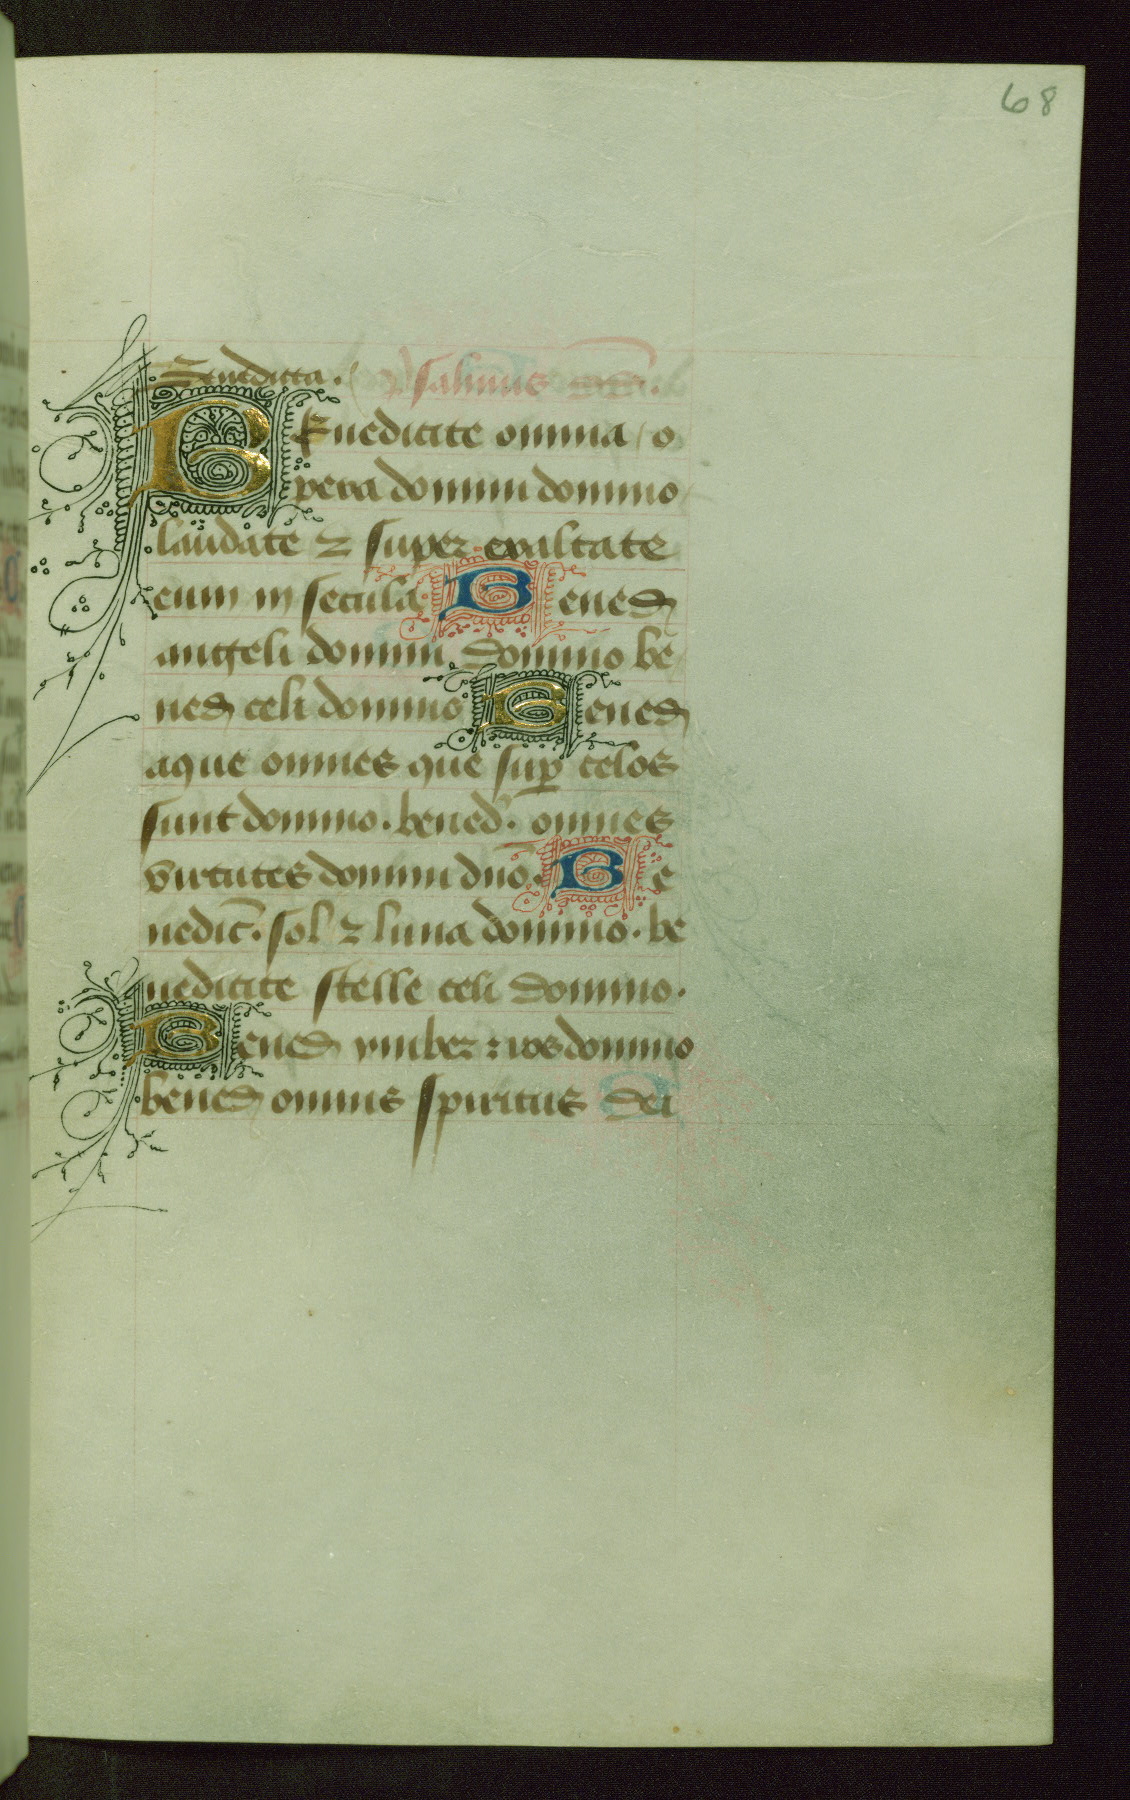 68
Benedicta. psalmus
BEnedicite omnia o
pera domini domino
laudate ⁊ super exaltate
eum in secula Bened
angeli domini domino be
ned celi domino Bened
aque omnes que sup celos
sunt domino. bened. omnes
virtutes domini dno. Be
nedic. sol ⁊ luna domino. be
nedicite stelle celi domino.
Bened ymber ⁊ ros domino
bened omnis spiritus dei